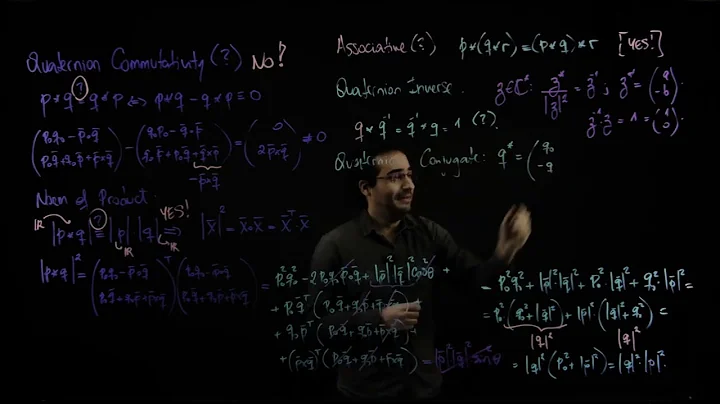 Quaternion Commutativity (?) No!
p*q = q*p ⇔ p*q - q*p = 0
(p₀q₀ - p̄·q̄ / p₀q̄ + q₀p̄ + p̄×q̄) - (q₀p₀ - q̄·p̄ / q₀p̄ + p₀q̄ + q̄×p̄) = (0 / 2p̄×q̄) ≠ 0
-p̄×q̄
Norm of Product:
ℝ |p*q| = |p| |q| YES! ⇒ |x̄|² = x̄·x̄ = x̄ᵀx̄
ℝ ℝ
|p*q|² = (p₀q₀ - p̄·q̄ / p₀q̄ + q₀p̄ + p̄×q̄)ᵀ (p₀q₀ - p̄·q̄ / p₀q̄ + q₀p̄ + p̄×q̄) = p₀²q₀² - 2p₀q₀ p̄·q̄ + |p̄|²|q̄|² cos²θ +
+ p₀q̄ᵀ (p₀q̄ + q₀p̄ + p̄×q̄) +
+ q₀p̄ᵀ (p₀q̄ + q₀p̄ + p̄×q̄) +
+ (p̄×q̄)ᵀ (p₀q̄ + q₀p̄ + p̄×q̄) = |p̄|²|q̄|² sin²θ
Associative (?) p*(q*r) = (p*q)*r [YES!]
Quaternion Inverse. z∈ℂ: z*/|z|² = z⁻¹; z* = (a / -b)
q*q⁻¹ = q⁻¹*q = 1 (?). z⁻¹·z = 1 = (1 / 0)
Conjugate: q* = (q₀ / -q
= p₀²q₀² + |p̄|²·|q̄|² + p₀²·|q̄|² + q₀²·|p̄|² =
= p₀² (q₀² + |q̄|²) + |p̄|² (|q̄|² + q₀²) =
|q|² |q|²
= |q|² (p₀² + |p̄|²) = |q|²·|p|².